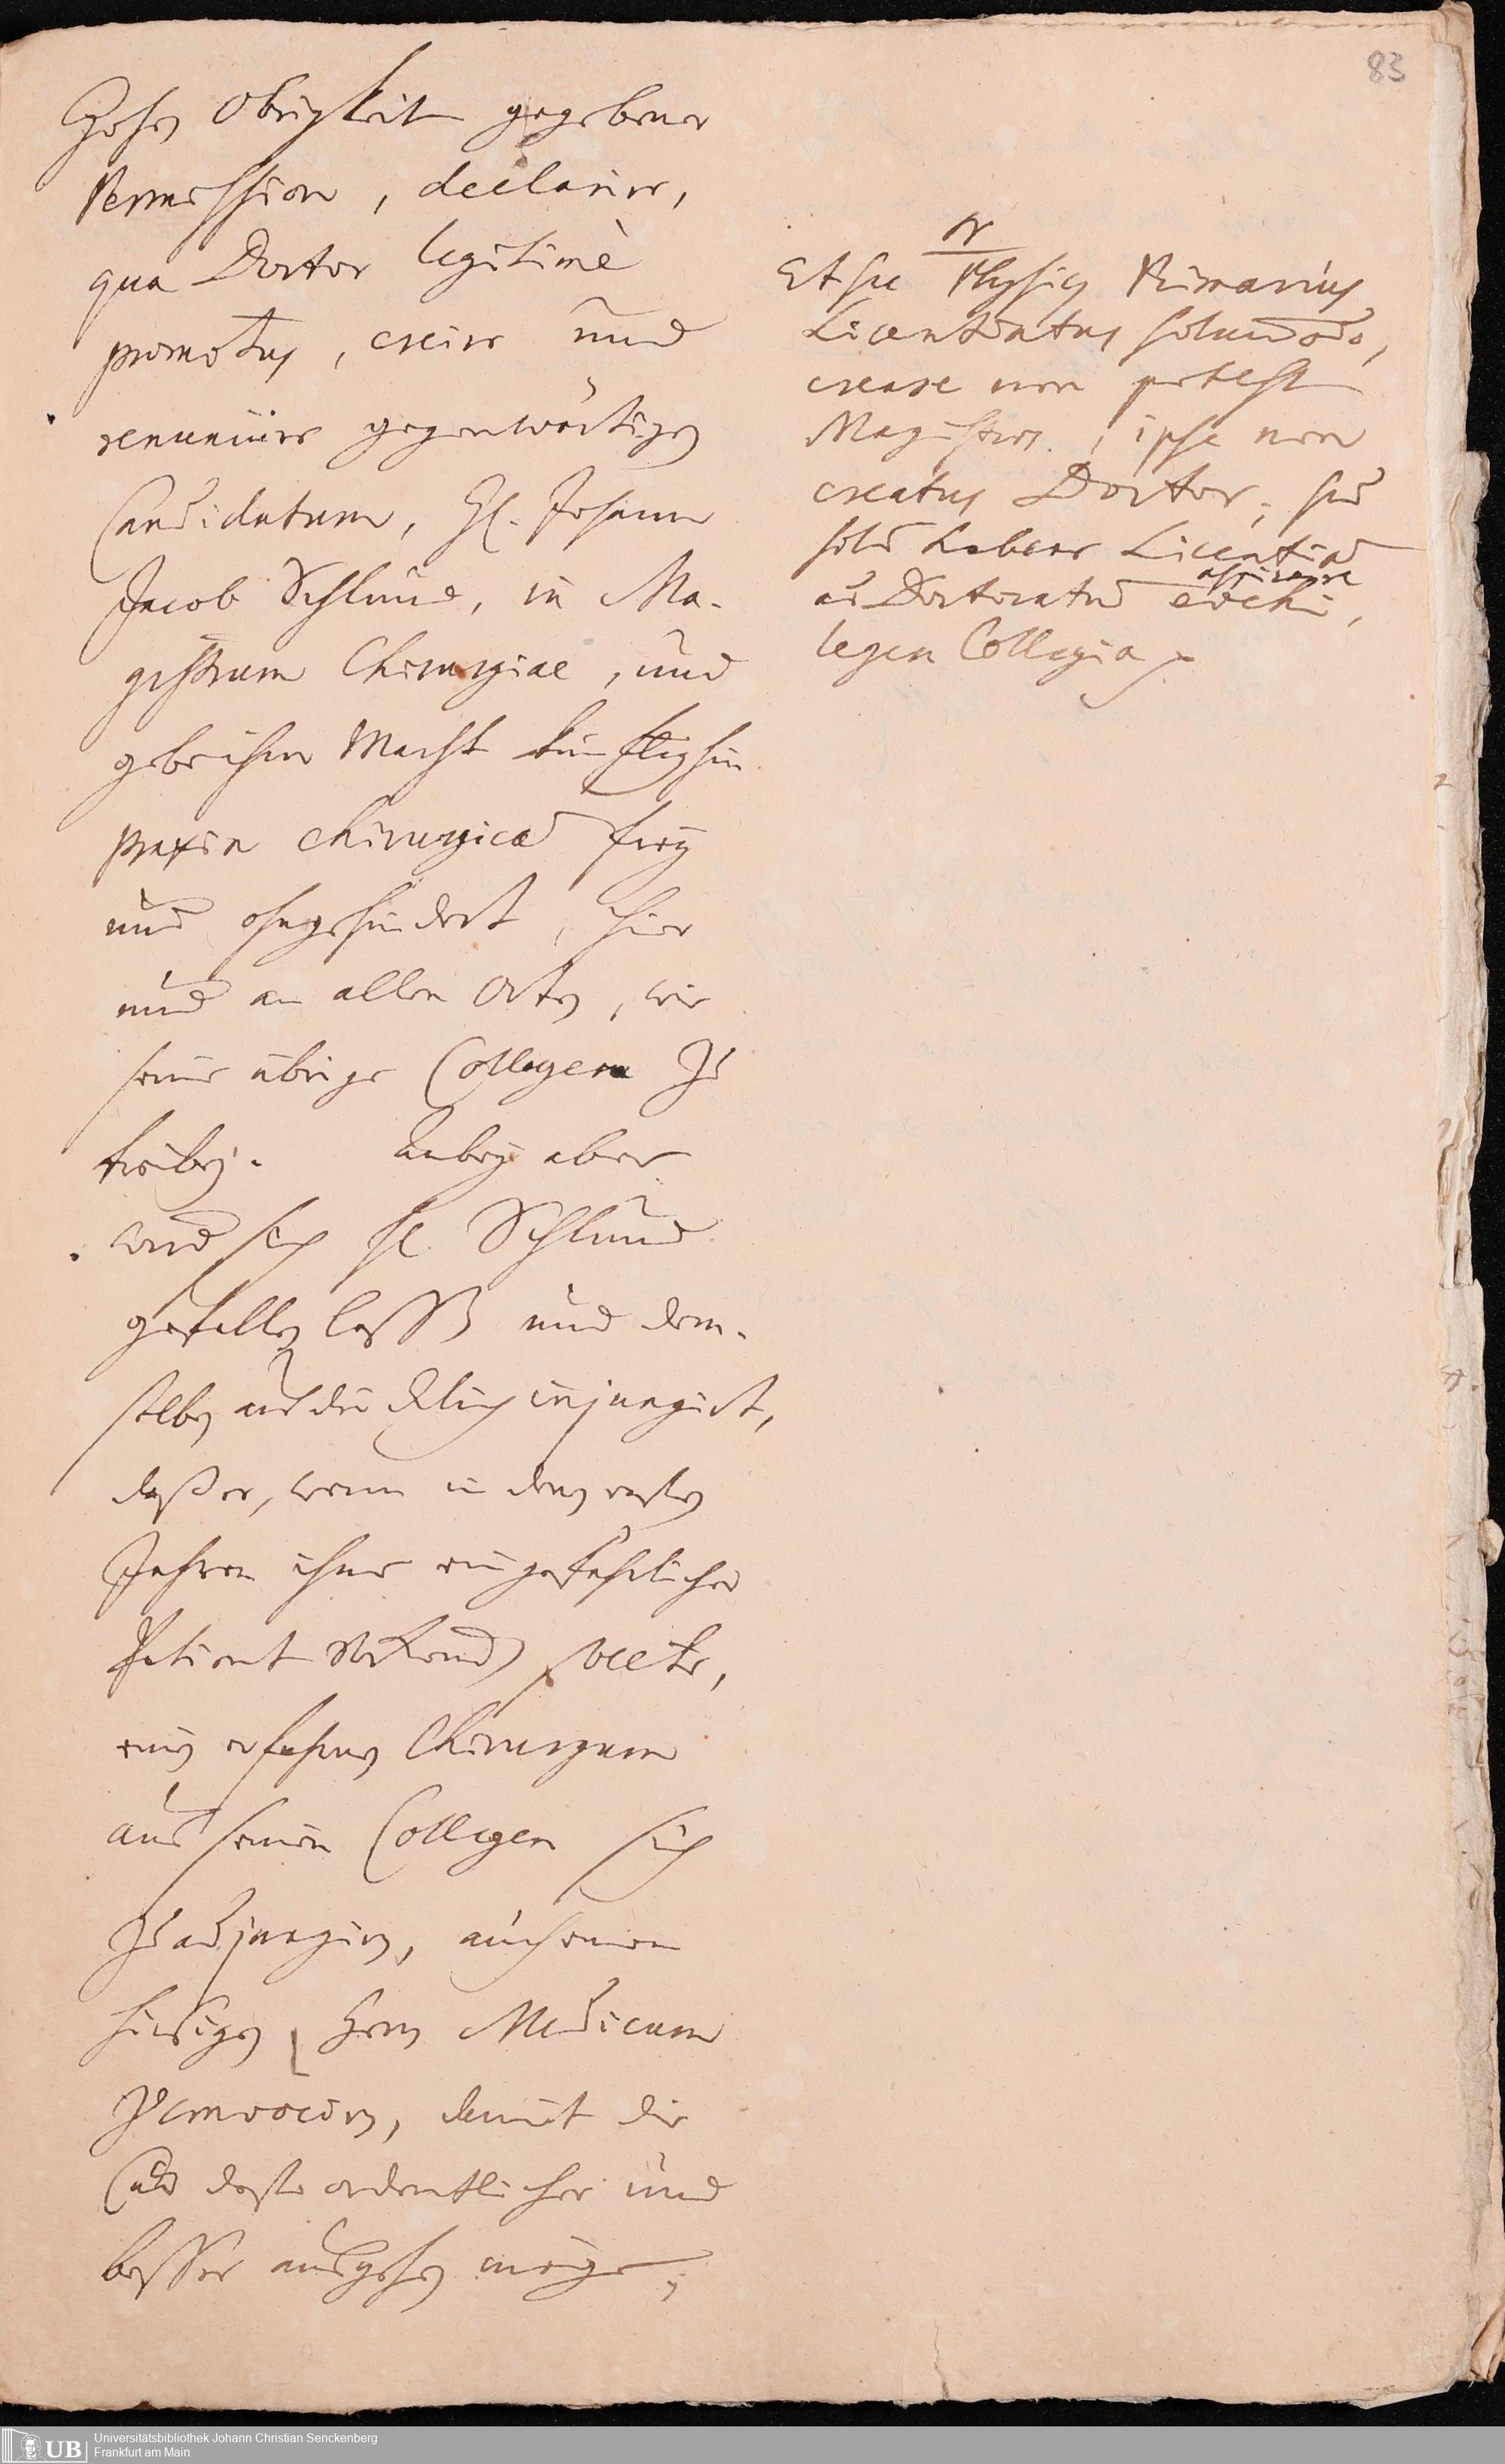 83
Hohen Obrigkeit gegebener
Permission, declarire,
qua Doctor legitimè
promotus, creire und
renunciire gegenwärtigen
Candidatum, H. Johann
Jacob Schlund, in Ma-
gistrum Chirurgiae, und
gebe ihm Macht künftighin
praxin chirurgicā frey
und ohngehindert, hier
und an allen Orten, wie
seine übrige Collegen zu
treiben. Anbey aber
wird sich H. Schlund
gefallen lassen und dem-
selben ausdrücklich injungirt,
daß er, wenn in denen ersten
Jahren ihme ein gefährlicher
Patient vorkommen sollte,
einen erfahrnen Chirurgum
aus seinen Collegen sich
zu adjungiren, auch einen
hiesigen Herrn Medicum
zu convociren, damit die
Cur desto ordentlicher und
besser ausgehen möge,
Et sic Physicus Primarius
Licentiatus solummodo,
creare non potest
Magistros, ipse non
creatus Doctor, sed
solū habens Licentiā
aspirare
ad Doctoratū evehi,
legen Collegia
Universitätsbibliothek Johann Christian Senckenberg
Frankfurt am Main
UB